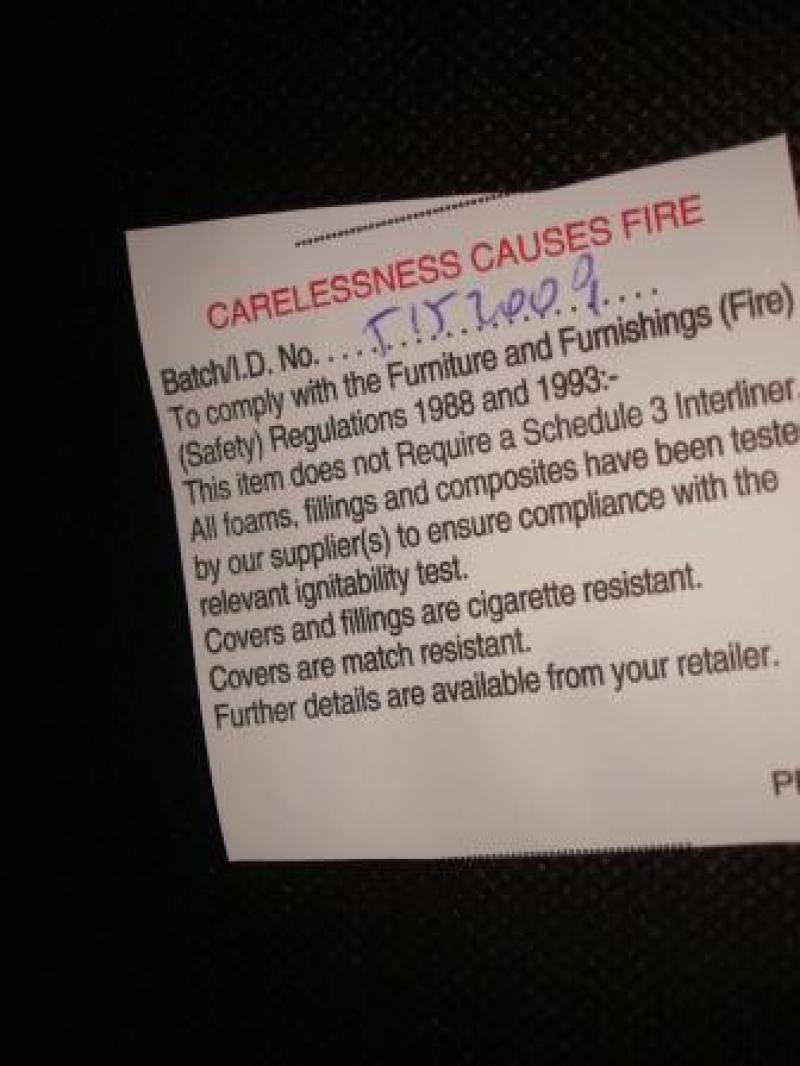 CARELESSNESS CAUSES FIRE
Batch/I.D. No. .... 515 2009 ....
To comply with the Furniture and Furnishings (Fire)
(Safety) Regulations 1988 and 1993:-
This item does not Require a Schedule 3 Interliner.
All foams, fillings and composites have been teste
by our supplier(s) to ensure compliance with the
relevant ignitability test.
Covers and fillings are cigarette resistant.
Covers are match resistant.
Further details are available from your retailer.